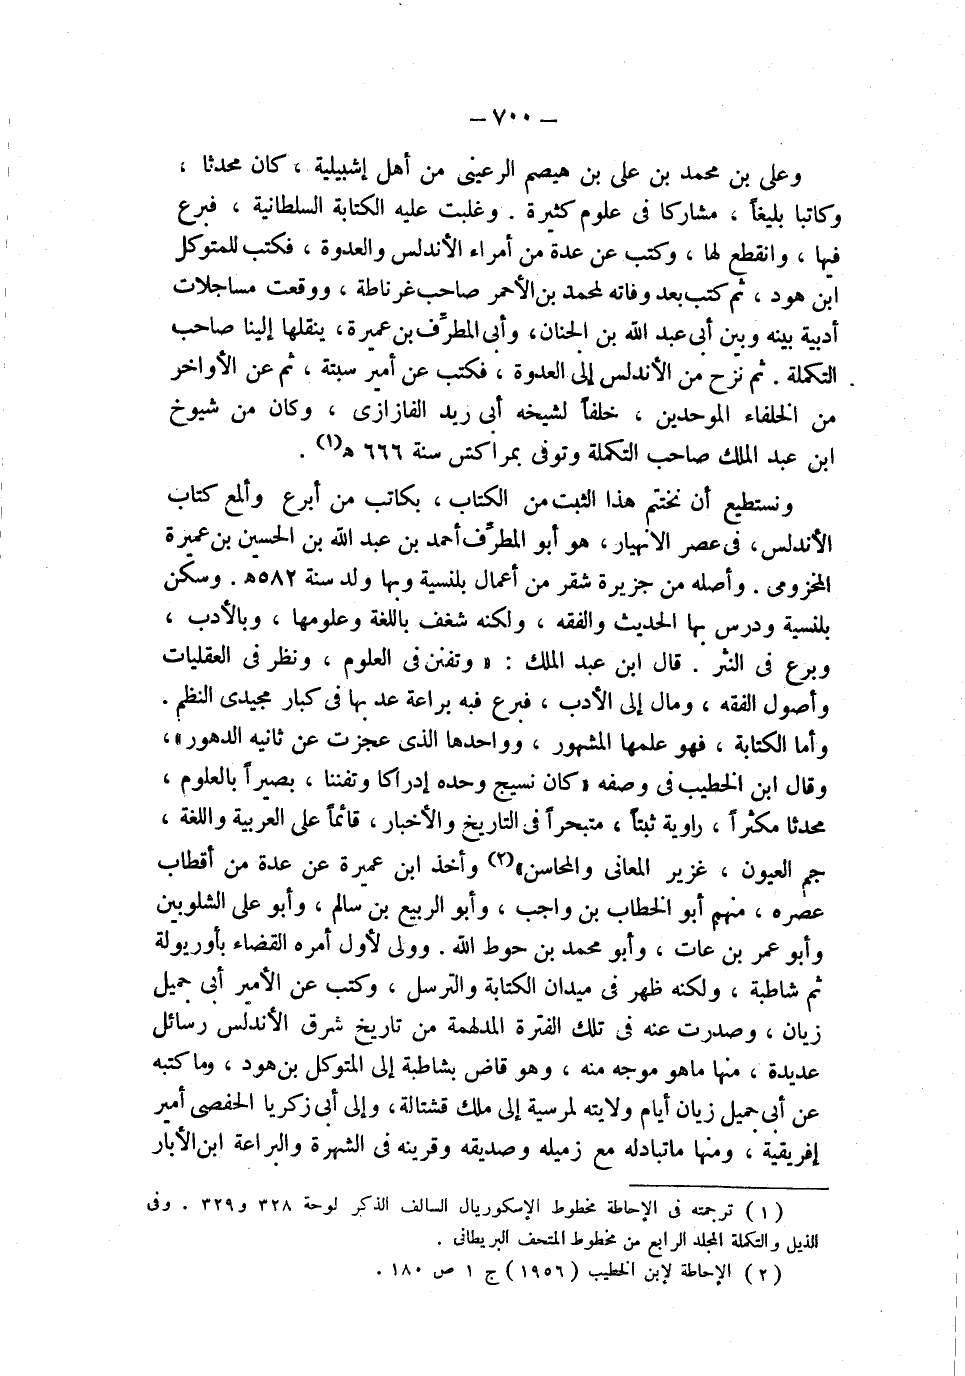 — ٧٠٠ —
وعلى بن محمد بن على بن هيصم الرعينى من أهل إشبيلية ، كان محدثا ،
وكاتبا بليغاً ، مشاركا فى علوم كثيرة . وغلبت عليه الكتابة السلطانية ، فبرع
فيها ، وانقطع لها ، وكتب عن عدة من أمراء الأندلس والعدوة ، فكتب للمتوكل
ابن هود ، ثم كتب بعد وفاته لمحمد بن الأحمر صاحب غرناطة ، ووقعت مساجلات
أدبية بينه وبين أبى عبد الله بن الجنان، وأبى المطرِّف بن عميرة، ينقلها إلينا صاحب
التكملة . ثم نزح من الأندلس إلى العدوة ، فكتب عن أمير سبتة ، ثم عن الأواخر
من الخلفاء الموحدين ، خلفاً لشيخه أبى زيد الفازازى ، وكان من شيوخ
ابن عبد الملك صاحب التكملة وتوفى بمراكش سنة ٦٦٦ هـ(١) .
ونستطيع أن نختم هذا الثبت من الكتاب ، بكاتب من أبرع وألمع كتاب
الأندلس، فى عصر الانهيار، هو أبو المطرِّف أحمد بن عبد الله بن الحسين بن عميرة
المخزومى . وأصله من جزيرة شقر من أعمال بلنسية وبها ولد سنة ٥٨٢هـ . وسكن
بلنسية ودرس بها الحديث والفقه ، ولكنه شغف باللغة وعلومها ، وبالأدب ،
وبرع فى النثر . قال ابن عبد الملك : « وتفنن فى العلوم ، ونظر فى العقليات
وأصول الفقه ، ومال إلى الأدب ، فبرع فيه براعة عد بها فى كبار مجيدى النظم .
وأما الكتابة ، فهو علمها المشهور ، وواحدها الذى عجزت عن ثانيه الدهور»،
وقال ابن الخطيب فى وصفه « كان نسيج وحده إدراكا وتفننا ، بصيراً بالعلوم ،
محدثا مكثراً ، راوية ثبتاً ، متبحراً فى التاريخ والأخبار ، قائماً على العربية واللغة ،
جم العيون ، غزير المعانى والمحاسن»(٢) وأخذ ابن عميرة عن عدة من أقطاب
عصره ، منهم أبو الخطاب بن واجب ، وأبو الربيع بن سالم ، وأبو على الشلوبين
وأبو عمر بن عات ، وأبو محمد بن حوط الله . وولى لأول أمره القضاء بأوريولة
ثم شاطبة ، ولكنه ظهر فى ميدان الكتابة والترسل ، وكتب عن الأمير أبى جميل
زيان ، وصدرت عنه فى تلك الفترة المدلهمة من تاريخ شرق الأندلس رسائل
عديدة ، منها ماهو موجه منه ، وهو قاض بشاطبة إلى المتوكل بن هود ، وما كتبه
عن أبى جميل زيان أيام ولايته لمرسية إلى ملك قشتالة، وإلى أبى زكريا الحفصى أمير
إفريقية ، ومنها ماتبادله مع زميله وصديقه وقرينه فى الشهرة والبراعة ابن الأبار
(١) ترجمته فى الإحاطة مخطوط الإسكوريال السالف الذكر لوحة ٣٢٨ و٣٢٩ . وفى
الذيل والتكملة المجلد الرابع من مخطوط المتحف البريطانى .
(٢) الإحاطة لإبن الخطيب (١٩٥٦) ج ١ ص ١٨٠ .